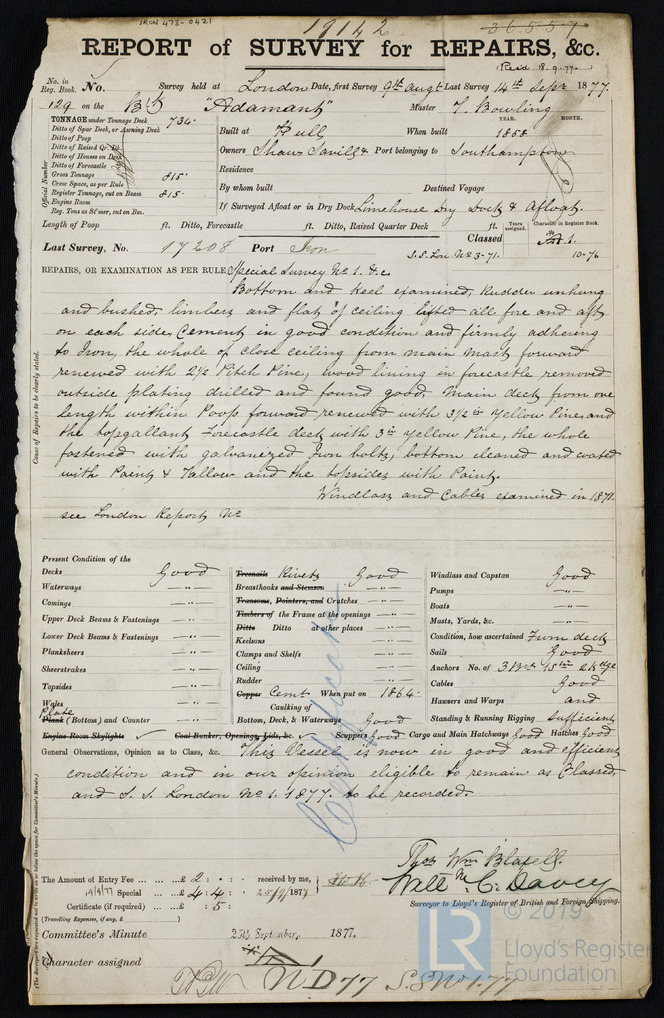 IRON 473-0421
19142
36557
REPORT of SURVEY for REPAIRS, &c.
Paid 18.9.77.
No. in Reg. Book. No. Survey held at London Date, first Survey 9th augt Last Survey 14th Sept 1877.
129 on the "Adamant" Master T. Bowling
Official Number
TONNAGE under Tonnage Deck 734.
Ditto of Spar Deck, or Awning Deck
Ditto of Poop
Ditto of Raised Qr. Dk
Ditto of Houses on Deck
Ditto of Forecastle
Gross Tonnage 815.
Crew Space, as per Rule
Register Tonnage, cut on Beam 815.
Engine Room
Reg. Tons as St'mer, cut on Bm.
YEAR. MONTH.
Built at Hull When built 1858
Owners Shaw Savill & Port belonging to Southampton
Residence
By whom built Destined Voyage
If Surveyed Afloat or in Dry Dock Limehouse Dry Dock & Afloat.
Length of Poop ft. Ditto, Forecastle ft. Ditto, Raised Quarter Deck ft.
Years assigned. Character in Register Book.
Last Survey, No. 17208 Port Iron Classed
S.S. Lon. No 3-71. 10-76
REPAIRS, OR EXAMINATION AS PER RULE Special Survey No 1. &c.
Bottom and Keel examined, Rudder unhung
and bushed, limbers and flat of ceiling lifted all fore and aft
on each side, Cement in good condition and firmly adhering
to Iron, the whole of close ceiling from main mast forward
renewed with 2½ Pitch Pine, wood lining in forecastle removed
outside plating drilled and found good. Main deck from one
length within Poop forward renewed with 3½ in Yellow Pine, and
the topgallant Forecastle deck with 3 in Yellow Pine, the whole
fastened with galvanized Iron bolts, bottom cleaned and coated
with Paint & Tallow and the topsides with Paint.
Windlass and Cables examined in 1877.
see London Report No
Cause of Repairs to be clearly stated.
Present Condition of the
Decks Good
Waterways -"-
Comings -"-
Upper Deck Beams & Fastenings -"-
Lower Deck Beams & Fastenings -"-
Planksheers -"-
Sheerstrakes -"-
Topsides -"-
Wales -"-
Plate
Plank (Bottom) and Counter -"-
Engine Room Skylights ✓ Coal Bunker, Openings, Lids, &c. ✓
Treenails Rivets Good
Breasthooks and Stemson -"-
Transoms, Pointers, and Crutches -"-
Timbers of the Frame at the openings -"-
Ditto Ditto at other places -"-
Keelsons -"-
Clamps and Shelfs -"-
Ceiling -"-
Rudder -"-
Copper Cemt. When put on 1864.
Caulking of
Bottom, Deck, & Waterways Good
Scuppers Good Cargo and Main Hatchways Good Hatches Good
Windlass and Capstan Good
Pumps -"-
Boats -"-
Masts, Yards, &c. -"-
Condition, how ascertained From deck
Sails Good
Anchors No. of
Cables Good
Hawsers and Warps and
Standing & Running Rigging Sufficient
Certificate
General Observations, Opinion as to Class, &c. This Vessel is now in good and efficient
condition and in our opinion eligible to remain as Classed
and S. S. London No 1. 1877. to be recorded.
The Amount of Entry Fee £ 2 : : received by me,
19/9/77 Special £ 4 : 4 : 25/9/1877
Certificate (if required) £ : 5 :
(Travelling Expenses, if any, £ )
Thos Wm Blaxell.
Will m C. Davey
Surveyor to Lloyd's Register of British and Foreign Shipping.
Committee's Minute 25th September, 1877.
Character assigned
ND77 S.S No 1-77
(The Surveyors are requested not to write on or below the space for Committee's Minute.)
© 2019
LR
Lloyd's Register
Foundation